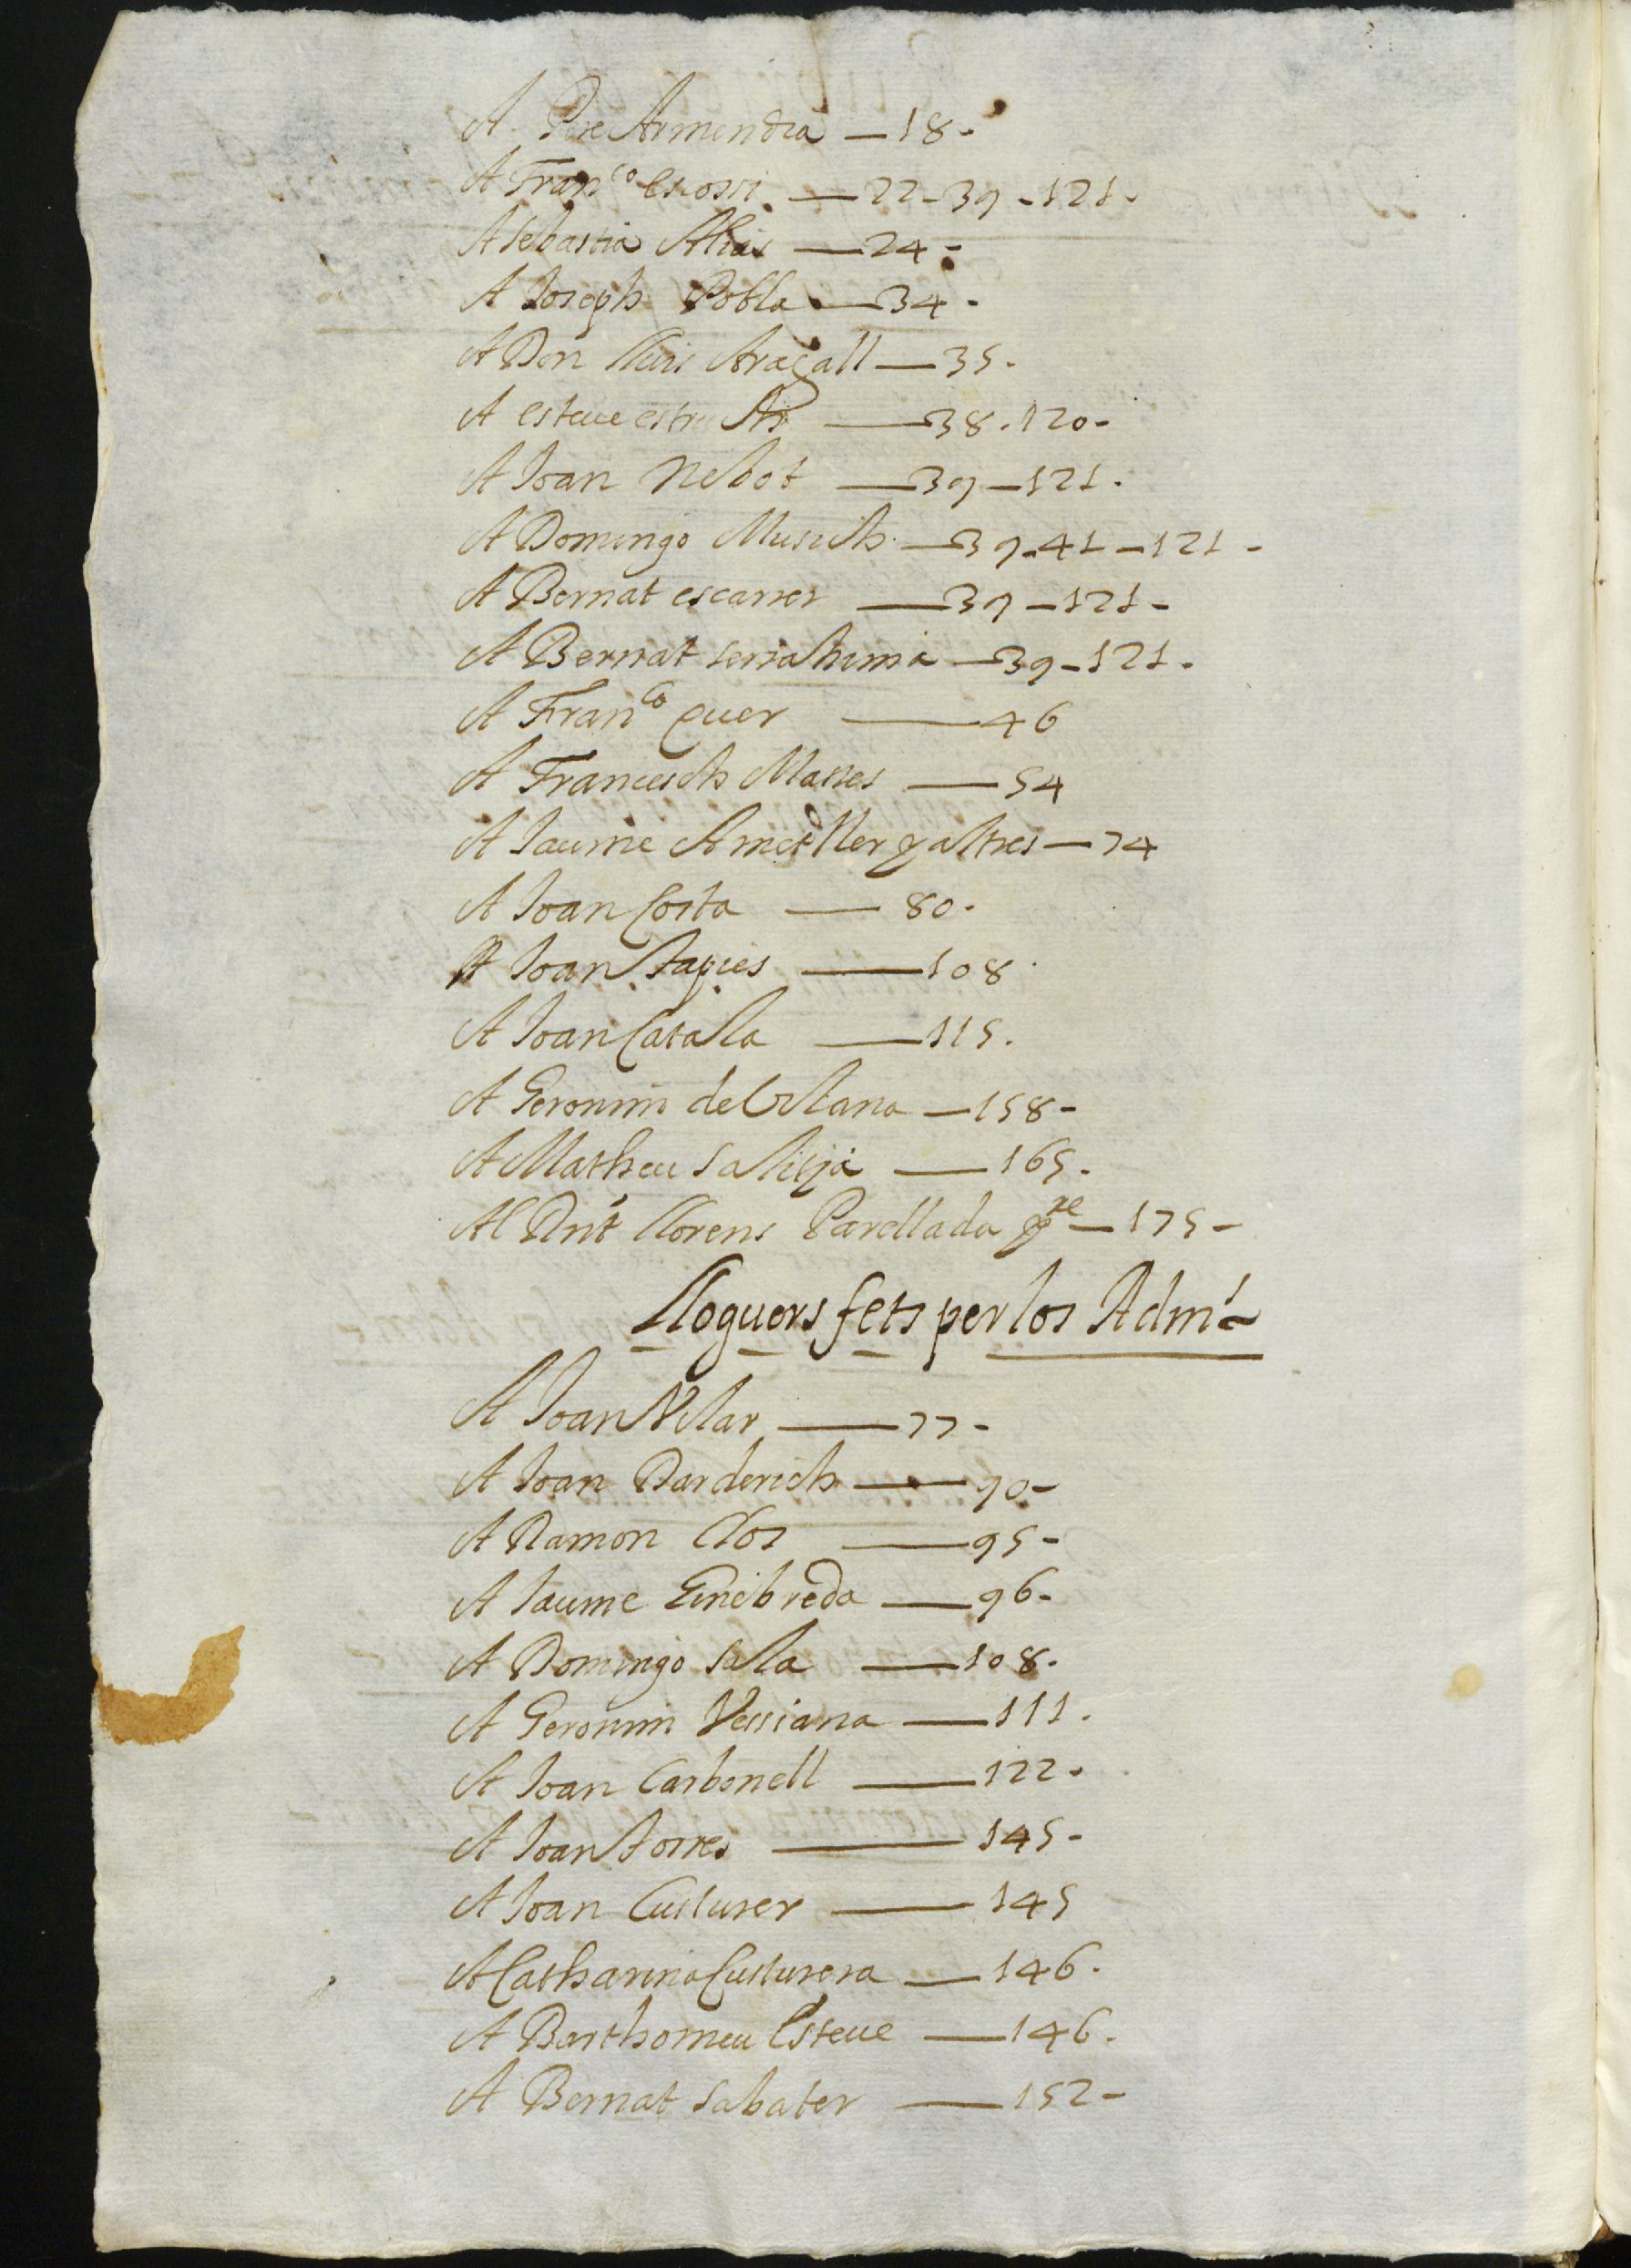 A Pere Armendia — 18 -
A Fran.co escorsi — 22 - 39 - 121 -
A sebastia Alias — 24 -
A Joseph Pobla — 34 -
A Don lluis Aragall — 35 -
A esteve estruch — 38 . 120 -
A Joan Nebot — 39 — 121 .
A Domingo Musich — 39 - 41 — 121 -
A Bernat escarrer — 39 — 121 -
A Bernat serrahima — 39 — 121 -
A Fran.co quer — 46
A Francesch Masses — 54
A Jaume Ametller y altres — 74
A Joan Costa — 80 -
A Joan Tapies — 108
A Joan Catala — 115 .
A Geronim de Vilana — 158 -
A Matheu salitja — 165 -
Al Dnt llorens Parellada pre — 175 -
Lloguers fets per los Adm.
A Joan Vilar — 77 -
A Joan Darderich — 90 -
A Ramon Clos — 95 -
A Jaume Ginebreda — 96 -
A Domingo sala — 108 -
A Geronim Vessiana — 111 .
A Joan Carbonell — 122 .
A Joan Torres — 145 -
A Joan Custurer — 145
A Catharina Custurera — 146 -
A Barthomeu Esteve — 146 .
A Bernat sabater — 152 -